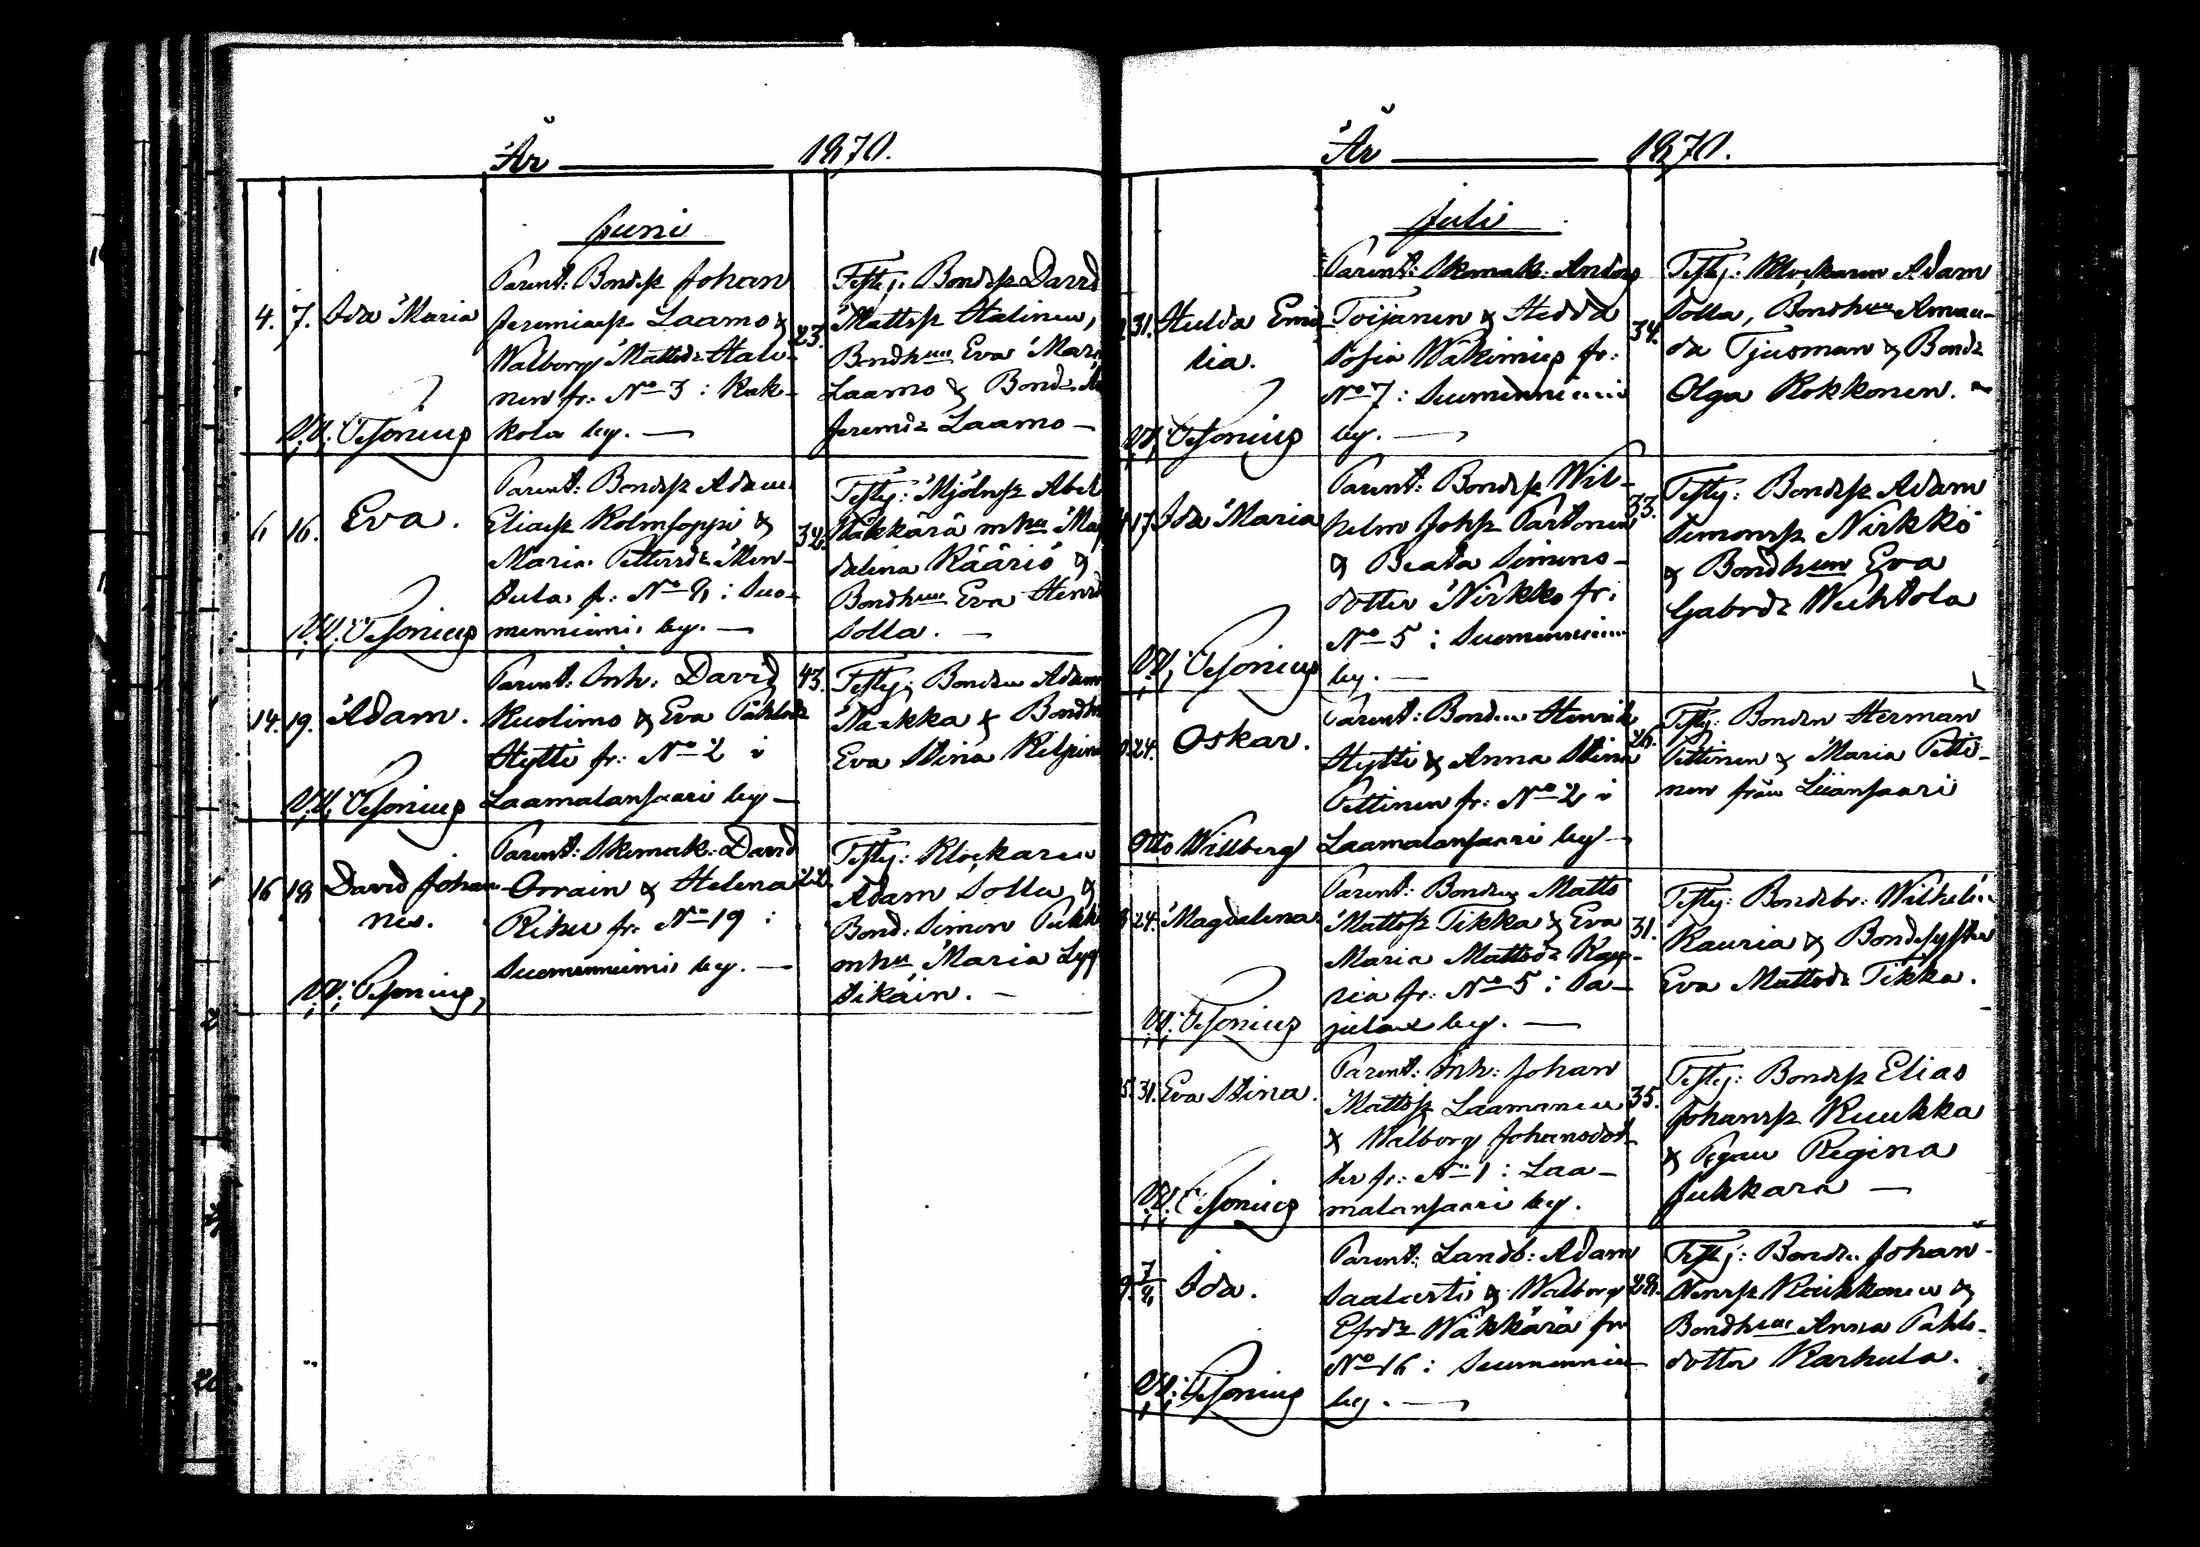 År 1870.
Juni
4. 7. Ida Maria
Parent: Bondes. Johan
Jeremiaes. Laamo &
Walborg Mattsdr Hali-
nen fr: No 3 i Kuk-
kola by. —
23.
Testes: Bondes. David
Mattss. Halinen,
Bondhun Eva Mari
Laamo & Bond
Jeremi Laamo —
V. V. Vesonius
6 16. Eva.
Parent: Bondes. Adam
Eliaes. Kolmsoppi &
Maria Pettersdr Men-
tula fr: No 8 i Suo-
menniemi by. —
32.
Testes: Mjölns. Abel
Wäkkärä m hu Mag
dalena Kääriö &
Bondhun Eva Henrd
Solla. —
V. V. Vesonius
14. 19. Adam.
Parent: Inh: David
Kuolimo & Eva Påhlsdr
Hytti fr: No 2 i
Laamalansaari by —
43.
Testes: Bonden Adam
& Bondh
Eva Stina Kilpine
V. V. Vesonius
16 18 David Johan-
nes.
Parent: Skomak: David
Orrain & Helena
Riku fr: No 19 i
Suomenniemi by. —
22.
Testes: Klockaren
Adam Solla &
Bond: Simon
m hu Maria Lyy
tikäin. —
V. V. Vesonius
År 1870.
Juli
31. Hulda Emi-
lia.
Parent: Skomak: Anders
Toijanen & Hedda
Sofia Wäkimies fr:
No 7 i Suomenniemi
by. —
34.
Testes: Klockaren Adam
Solla, Bondhun Aman-
da Tjusman & Bondr
Olga Kokkonen. —
V. V. Vesonius
17 Ida Maria
Parent: Bondes. Wil-
helm Johs. Partonen
& Beata Simons-
dotter Nirkko fr:
No 5 i Suomenniemi
by. —
33.
Testes: Bondes. Adam
Simonss. Nirkko
& Bondhun Eva
Gabrdr Wuhtola
V. V. Vesonius
24. Oskar.
Parent: Bonden Henrik
Hytti & Anna Stina
Pettinen fr: No 2 i
Laamalansaari by —
26.
Testes: Bonden Herman
Pettinen & Maria Petti-
nen från Liiansaari
Otto Willberg
24. Magdalena
Parent: Bonden Matts
Mattss. Tikka & Eva
Maria Mattsdr Kau-
ria fr: No 5 i Pa-
julax by. —
31.
Testes: Bondebr: Wilhelm
Kauria & Bondesyster
Eva Mattsdr Tikka.
V. V. Vesonius
31. Eva Stina.
Parent: Inh: Johan
Mattss. Laamanen
& Walborg Johansdot-
ter fr: No 1 i Laa-
malansaari by.
35.
Testes: Bondes. Elias
Johanss. Kuukka
& Pigan Regina
Jukkara —
V. V. Vesonius
7/8 Ida.
Parent: Landb: Adam
Saalasti & Walborg
Efrdr Wäkkärä fr
No 16 i Suomennie
by. —
28.
Testes: Bonden Johan
Kaukkonen &
Bondhun Anna Påhls-
dotter Karhula.
V. V. Vesonius